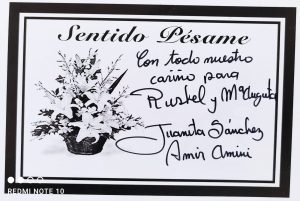 Sentido Pésame
Con todo nuestro
cariño para
Rustel y Mª Augusta
Juanita Sánchez
Amir Amini
REDMI NOTE 10